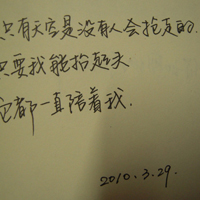 只有天空是没有人会抢走的.
只要我能抬起头
它都一直陪着我.
2010.3.29.